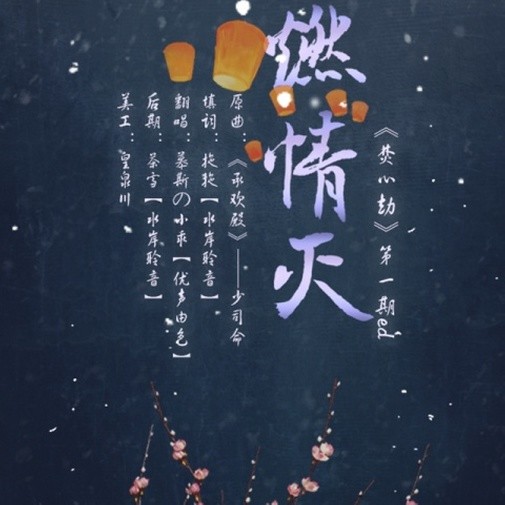 《焚心劫》第一期ed
燃情灭
原曲：《承欢殿》——少司命
填词：拖拖【水岸聆音】
翻唱：慕斯の小乖【优声由色】
后期：荼雪【水岸聆音】
美工：皇泉川